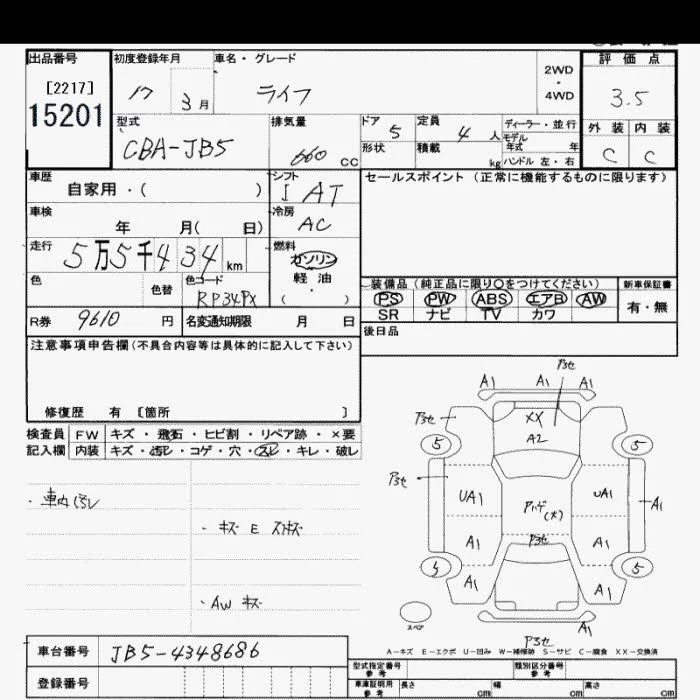 出品番号 初度登録年月 車名・グレード 2WD ・ 4WD 評価点
[2217]
15201 17 3月 ライフ 3.5
型式 排気量 ドア 定員 ディーラー・並行 外装 内装
CBA-JB5 660 CC 5 4人 モデル年式 年 C C
形状 積載 kg ハンドル 左・右
車歴 自家用・( ) シフト I AT セールスポイント (正常に機能するものに限ります)
車検 年 月( 日) 冷房 AC
走行 5万5千434km 燃料 ガソリン
軽油
( ・ )
色 色替 色コード RP34PX 装備品 (純正品に限り○をつけてください) 新車保証書
PS PW ABS エアB AW 有・無
SR ナビ TV カワ
R券 9610 円 名変通知期限 月 日 後日品
注意事項申告欄(不具合内容等は具体的に記入して下さい)
修復歴 有 [箇所 ]
検査員 FW キズ・飛石・ヒビ割・リペア跡・×要
記入欄 内装 キズ・汚レ・コゲ・穴・スレ・キレ・破レ
・車内汚レ
・キズ E スリキズ
・AW キズ
P3セ
A1 A1 A1
P3セ XX
A2
5 5
P3セ
UA1 Pハゲ(大) UA1 A1
A1 P3セ A1
5 5
A1 A1
A1
スペア
P3セ
A-キズ E-エクボ U-凹み W-補修跡 S-サビ C-腐食 XX-交換済
車台番号 JB5-4348686
登録番号
型式指定番号 参考 類別区分番号 参考
車庫証明用 参考 長さ cm 幅 cm 高さ cm